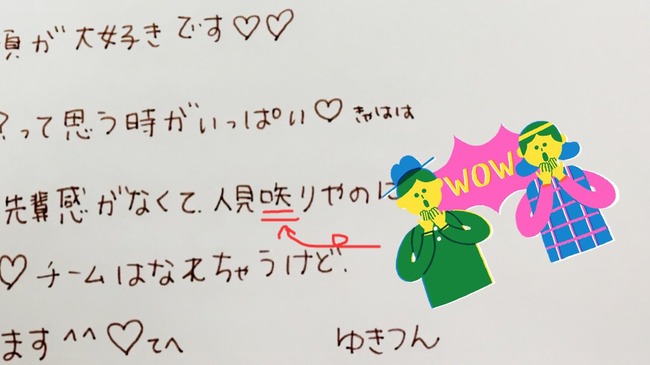 が大好きです♡♡
?って思う時がいっぱい♡きゃはは
先輩感がなくて、人見咲りやのに
♡チームはなれちゃうけど、
ます^^♡てへ ゆきつん
WOW